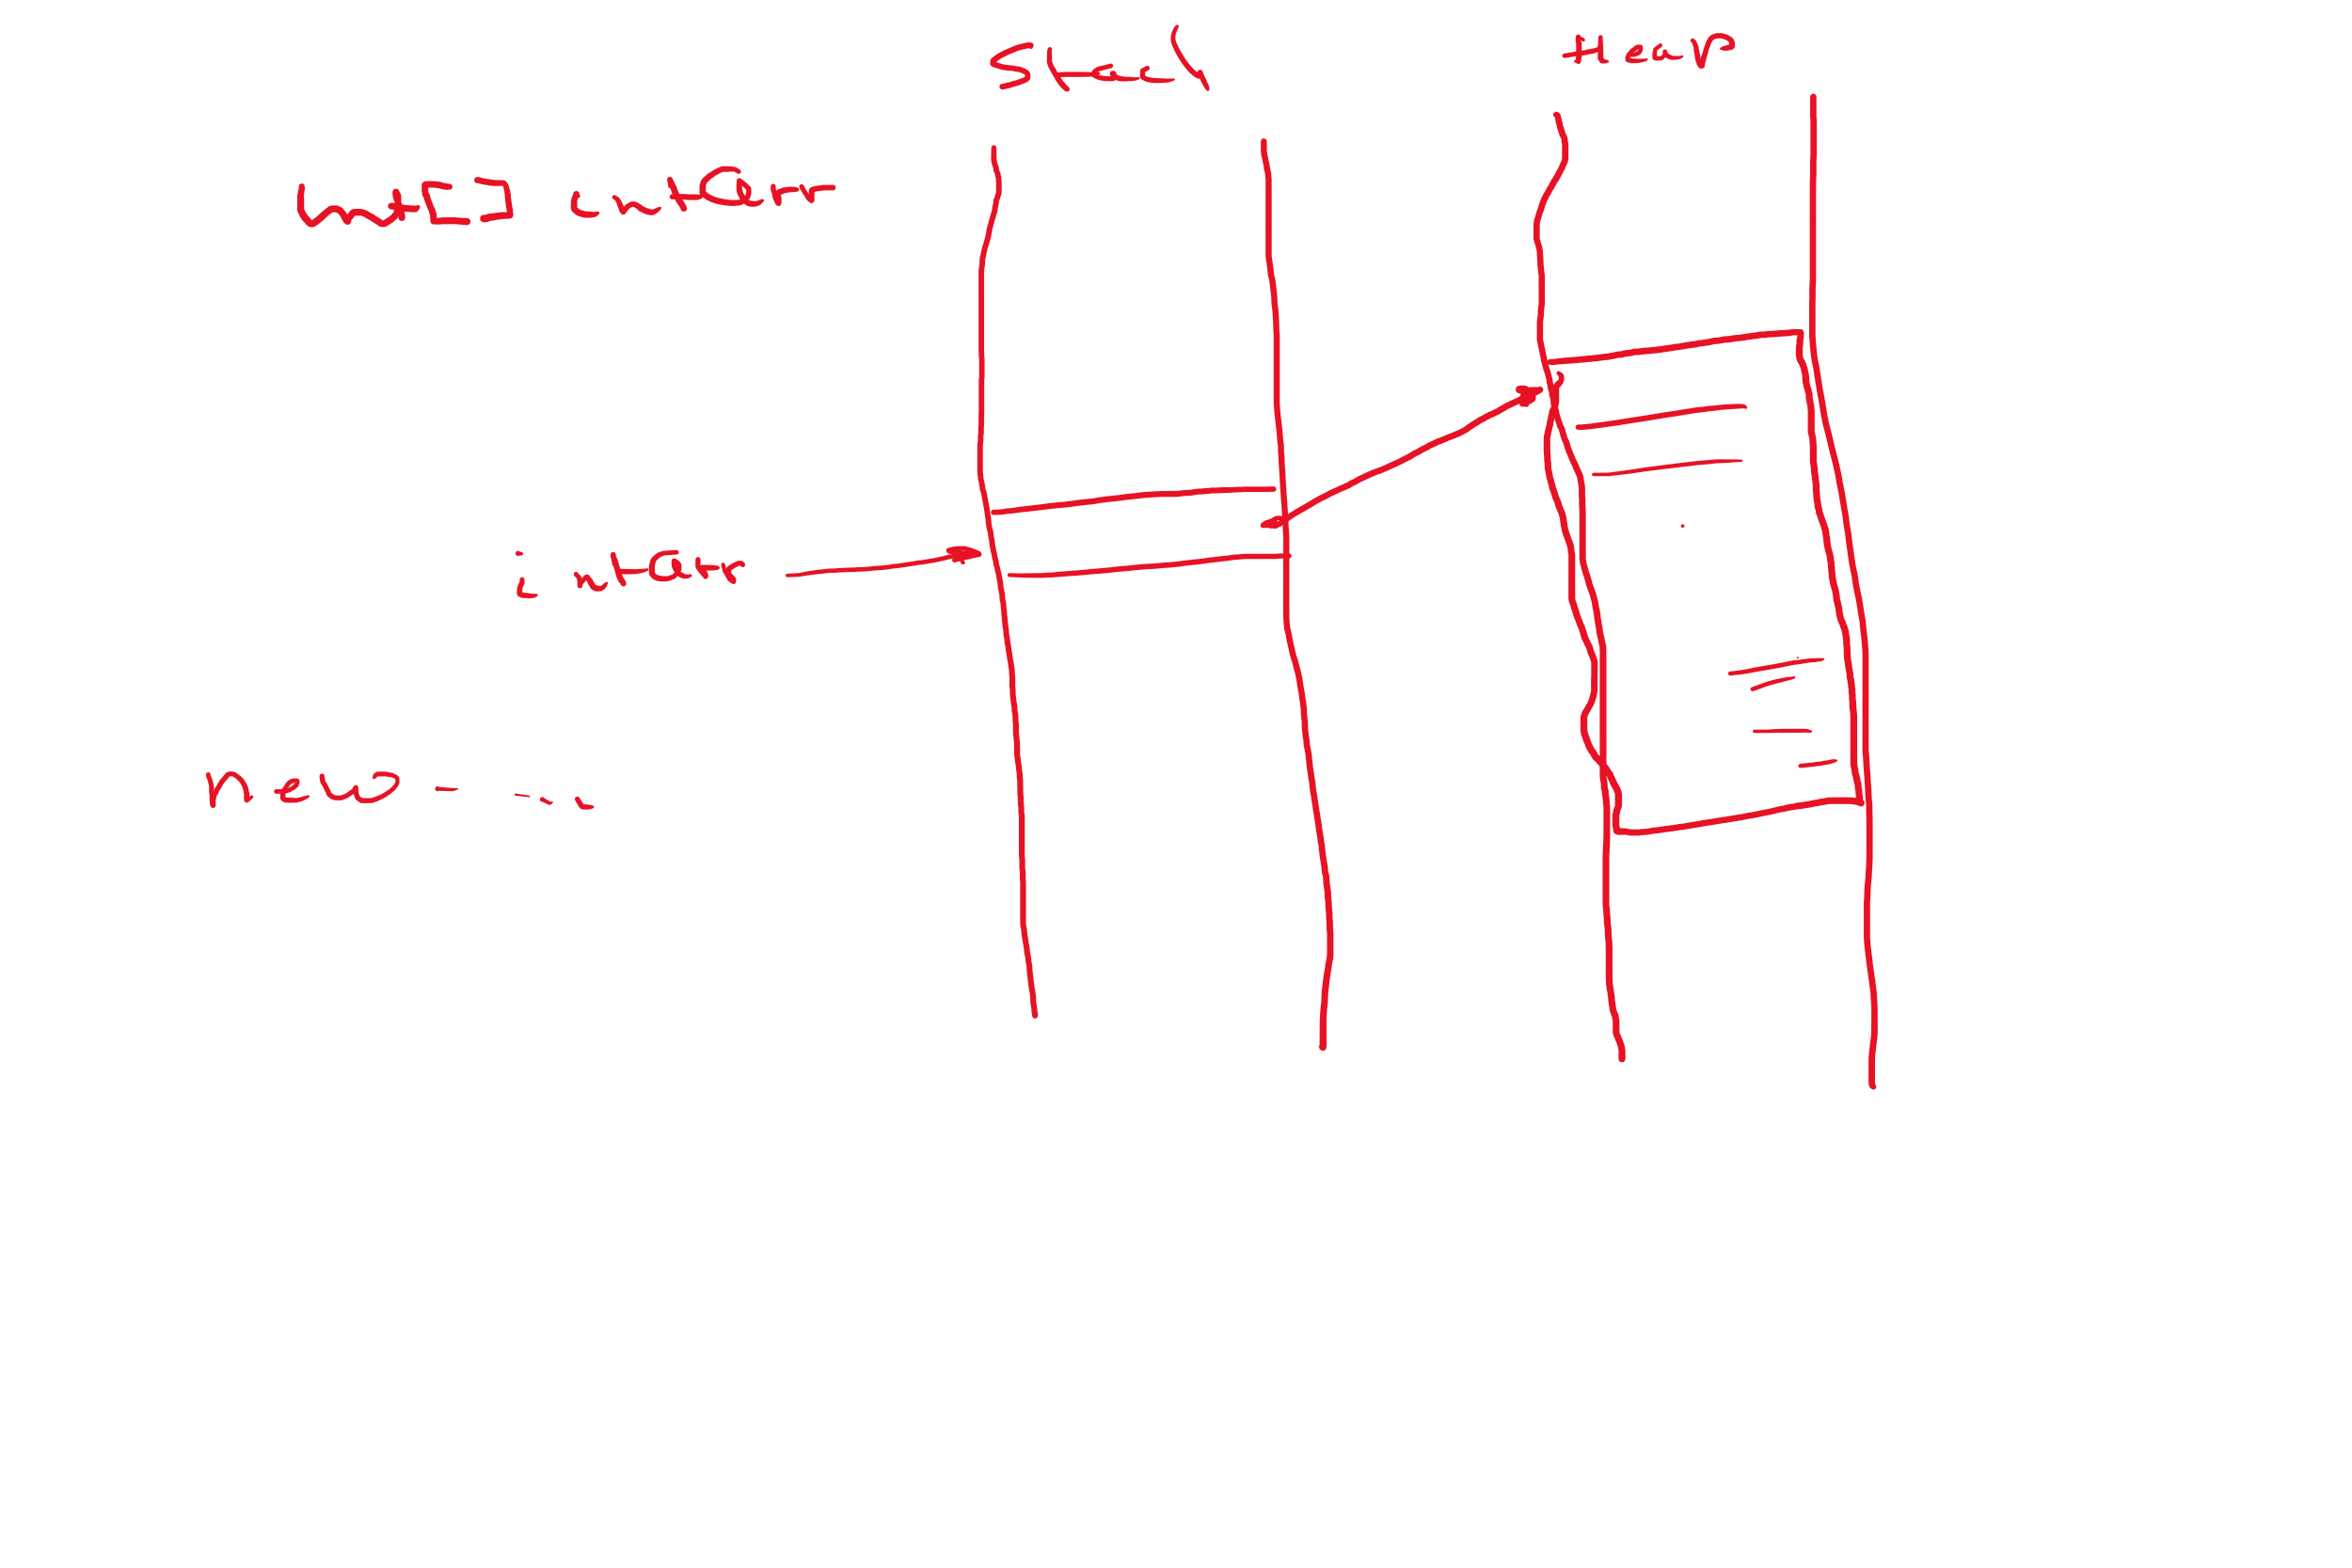 Stack
Heap
int[] intArr
intArr
new - - - .